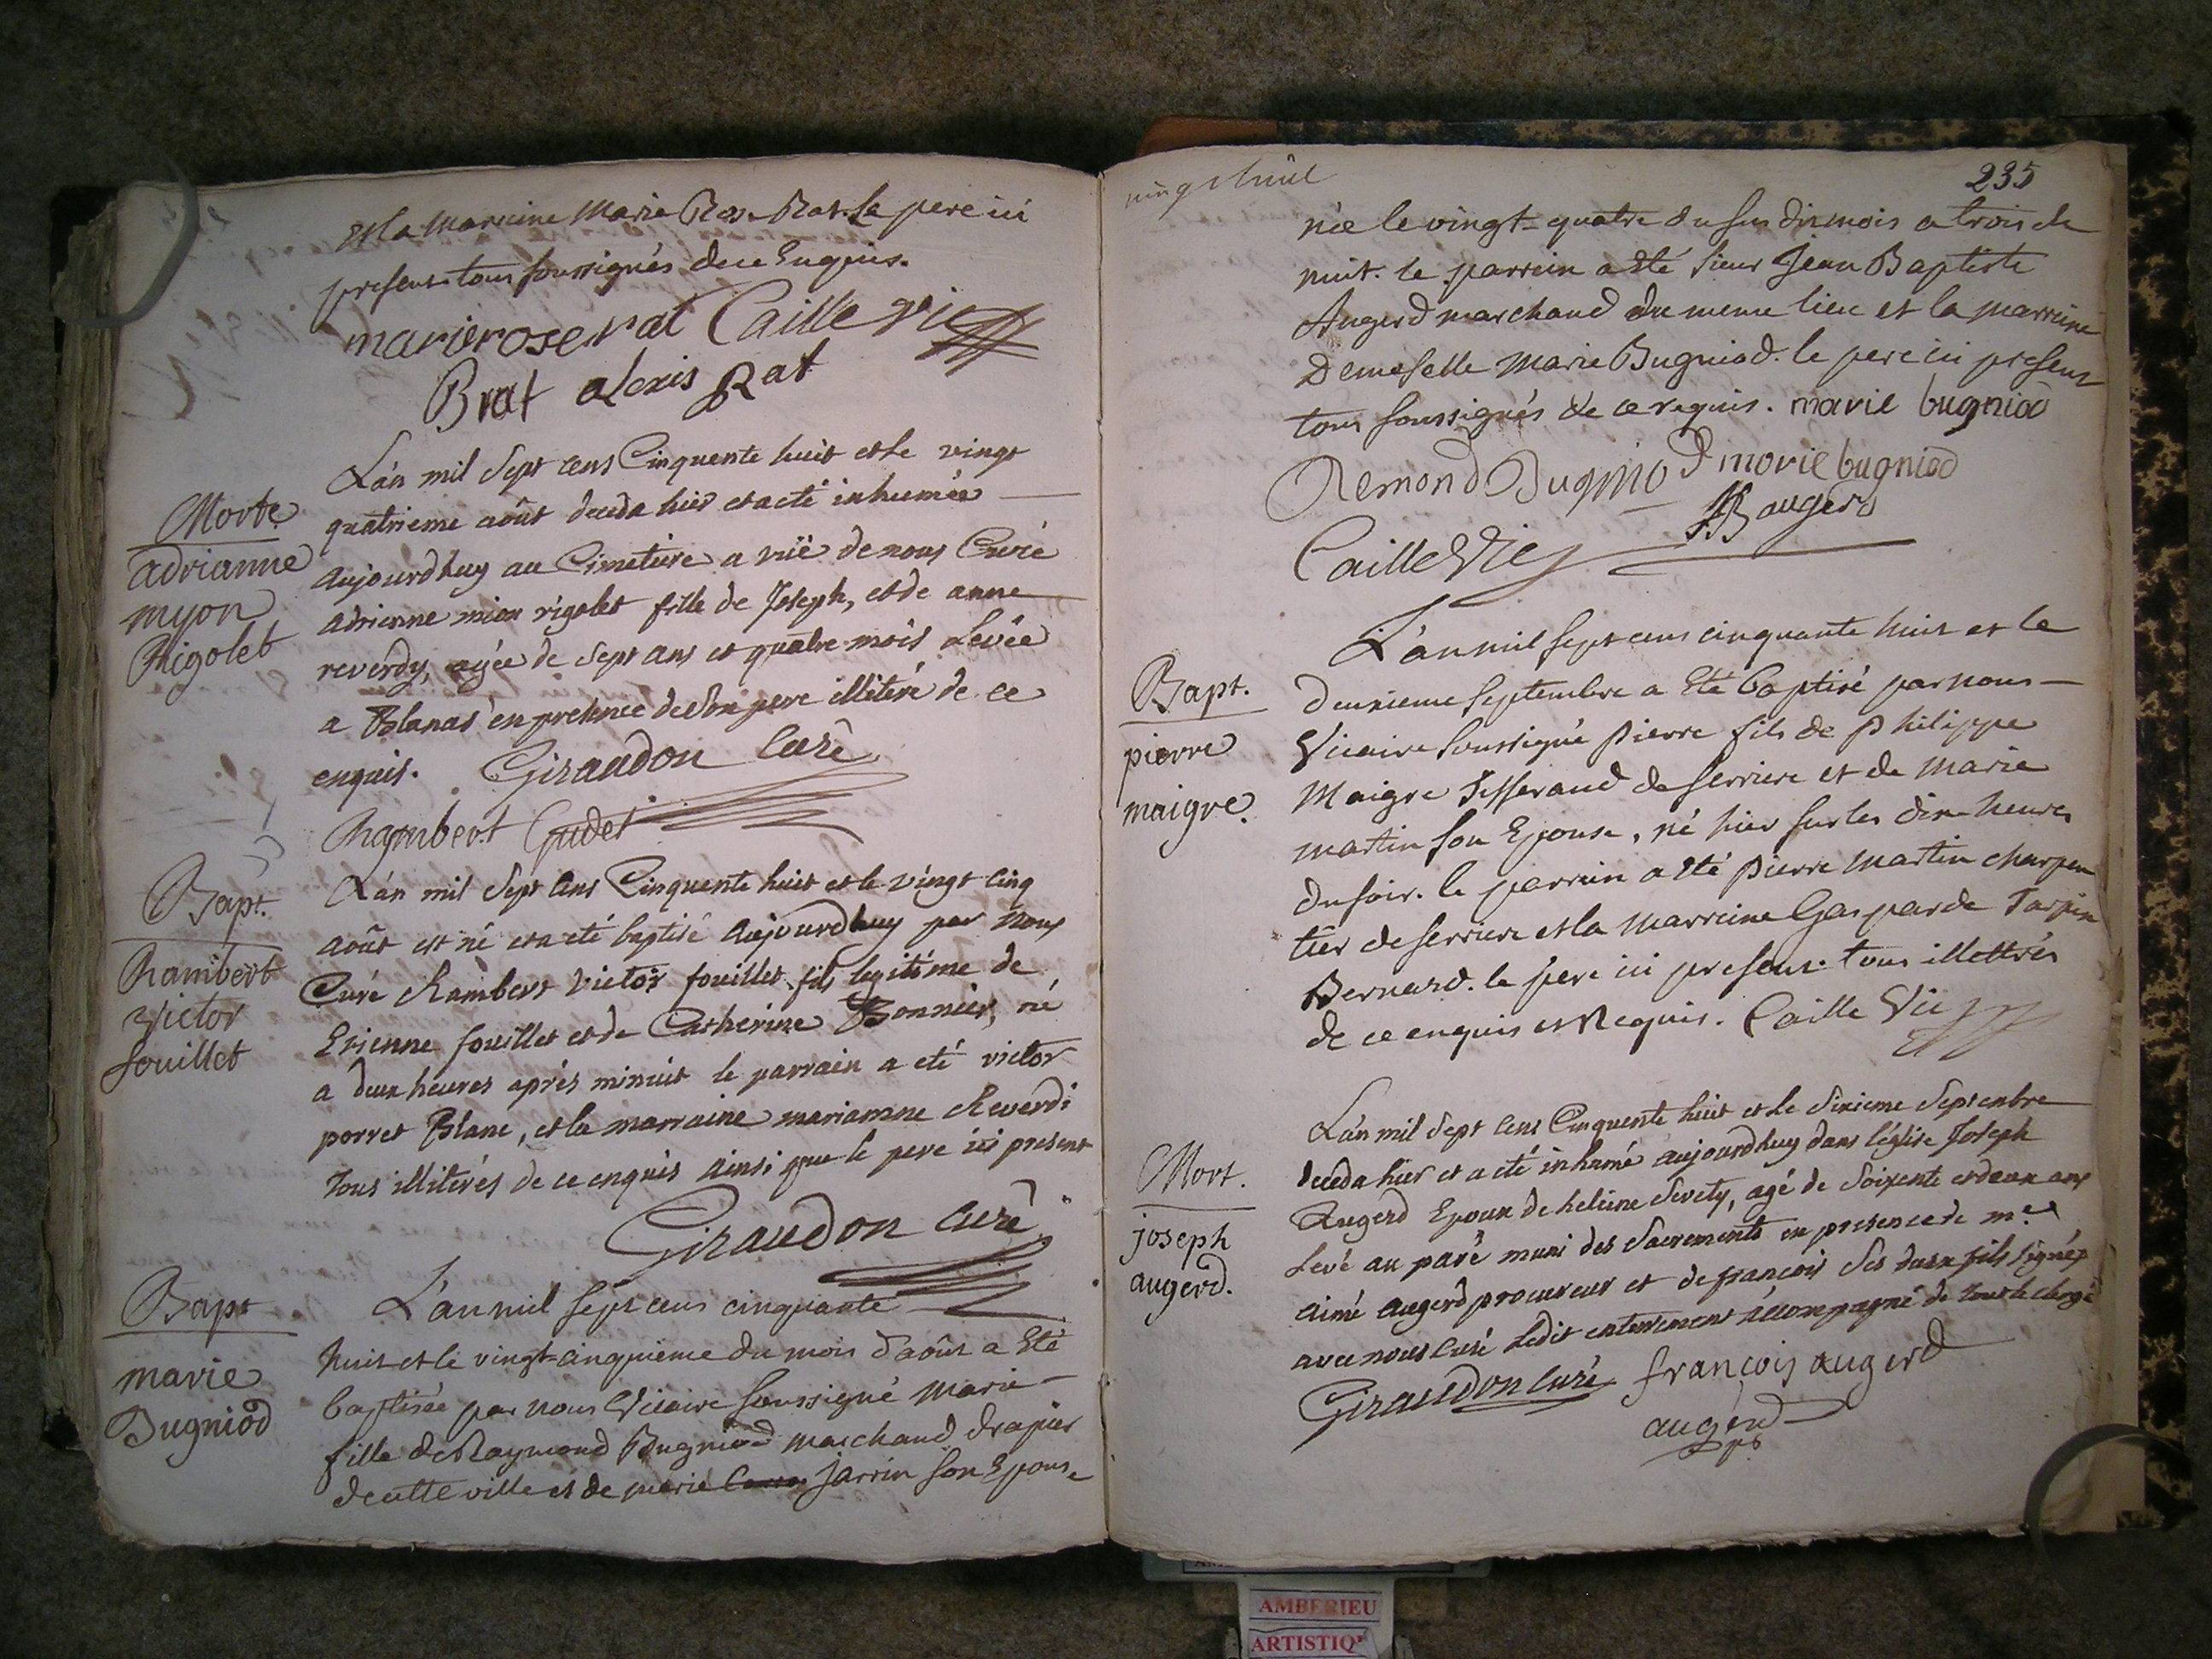 et la marreine Marie Rose Rat. le pere ici
present. tous soussignés de ce Enquis.
marie rose rat Caille vic
Brat alexis Rat
Morte
adrianne
myon
Rigolet
L'an mil sept cens Cinquente huit et le vingt
quatrieme août deceda hier et a eté inhumée
aujourdhuy au Cimetiere a vüe de nous Curé
adrienne mion rigolet fille de Joseph, et de anne
reverdy, agée de sept ans et quatre mois Levée
a Blanas en presence de son pere illiteré de ce
enquis. Giraudon Curé
Rambert Gudet
Bapt.
Rambert
Victor
fouillet
L'an mil sept cens Cinquente huit et le vingt cinq
août est né et a eté baptisé aujourdhuy par nous
Curé Rambert Victor fouillet fils legitime de
Etienne fouillet et de Catherine Bonnier, né
a deux heures aprés minuit le parrain a eté victor
porret Blanc, et la marraine marianne Reverdi
Tous illiterés de ce enquis ainsi que le pere ici present
Giraudon Curé
Bapt
marie
Bugniod
L'an mil sept cens cinquante
huit et le vingt-cinquieme du mois d'août a Eté
baptisée par nous Vicaire soussigné Marie
fille de Raymond Bugniod marchand drapier
de cette ville et de marie jarrin son Epouse
vingt huit
235
née le vingt-quatre du susdit mois a trois de
nuit. le parrein a Eté sieur Jean Baptiste
Augerd marchand du meme lieu et la marreine
Demeselle Marie Bugniod. le pere ici present
tous soussignés de ce requis. marie bugniod
Remond Bugniod marie bugniod
JB augerd
Caille Vic
Bapt.
pierre
maigre
L'an mil sept cens cinquante huit et le
deuxieme septembre a Eté baptisé par nous
Vicaire soussigné Pierre fils de Philippe
Maigre Tisserand de serriere et de Marie
martin son Epouse, né hier sur les dix heures
du soir. le parrein a Eté Pierre Martin charpen
tier de serriere et la marreine Gasparde Tarpin
Bernard. le pere ici present. tous illettrés
de ce enquis et Requis. Caille Vic
Mort.
joseph
augerd.
L'an mil sept cens Cinquente huit et le sixieme septembre
deceda hier et a eté inhumé aujourdhuy dans l'église Joseph
Augerd Epoux de heleine Sevety, agé de soixente et deux ans
Levé au pavé muni des sacrements en presence de me
aimé augerd procureur et de francois ses deux fils signés
avec nous curé ledit enterrement accompagné de tout le clergé
Giraudon curé francois augerd
augerd
ps
AMBERIEU
ARTISTIQ